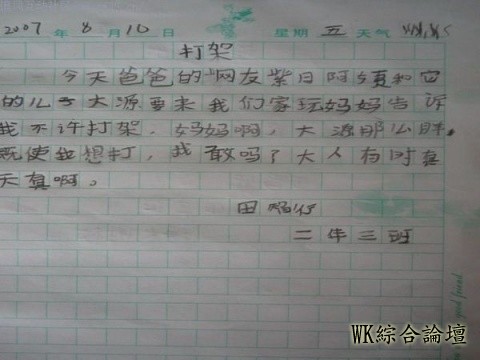 2007年8月10日 星期五 天气
打架
今天爸爸的"网友紫日阿姨和它
的儿子大源要来我们家玩妈妈告诉
我不许打架.妈妈啊，大源那么胖，
既使我想打，我敢吗？大人有时真
天真啊。
田
二年三班
good friend
WK綜合論壇